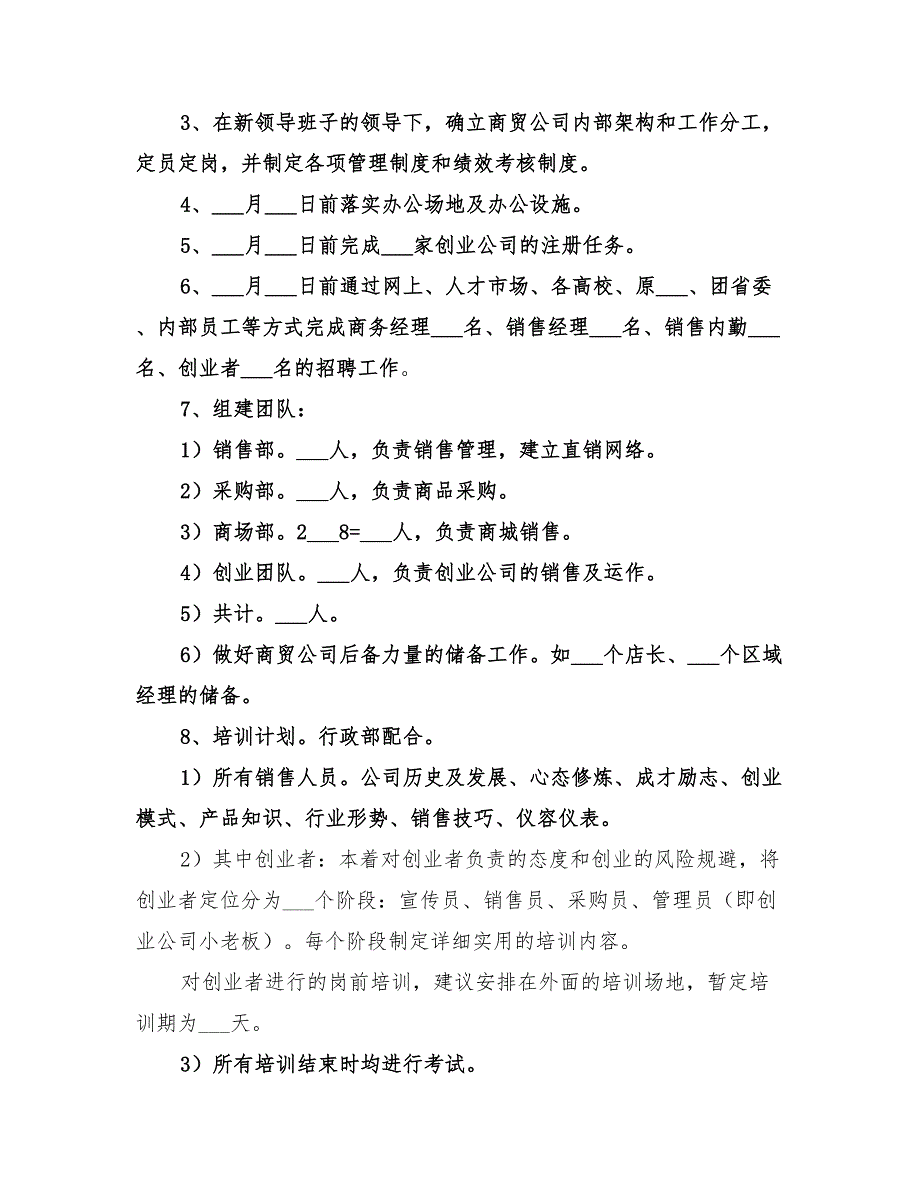 3、在新领导班子的领导下，确立商贸公司内部架构和工作分工，
定员定岗，并制定各项管理制度和绩效考核制度。
4、___月___日前落实办公场地及办公设施。
5、___月___日前完成___家创业公司的注册任务。
6、___月___日前通过网上、人才市场、各高校、原___、团省委
、内部员工等方式完成商务经理___名、销售经理___名、销售内勤___
名、创业者___名的招聘工作。
7、组建团队：
1）销售部。___人，负责销售管理，建立直销网络。
2）采购部。___人，负责商品采购。
3）商场部。2___8=___人，负责商城销售。
4）创业团队。___人，负责创业公司的销售及运作。
5）共计。___人。
6）做好商贸公司后备力量的储备工作。如___个店长、___个区域
经理的储备。
8、培训计划。行政部配合。
1）所有销售人员。公司历史及发展、心态修炼、成才励志、创业
模式、产品知识、行业形势、销售技巧、仪容仪表。
2）其中创业者：本着对创业者负责的态度和创业的风险规避，将
创业者定位分为___个阶段：宣传员、销售员、采购员、管理员（即创
业公司小老板）。每个阶段制定详细实用的培训内容。
对创业者进行的岗前培训，建议安排在外面的培训场地，暂定培
训期为___天。
3）所有培训结束时均进行考试。